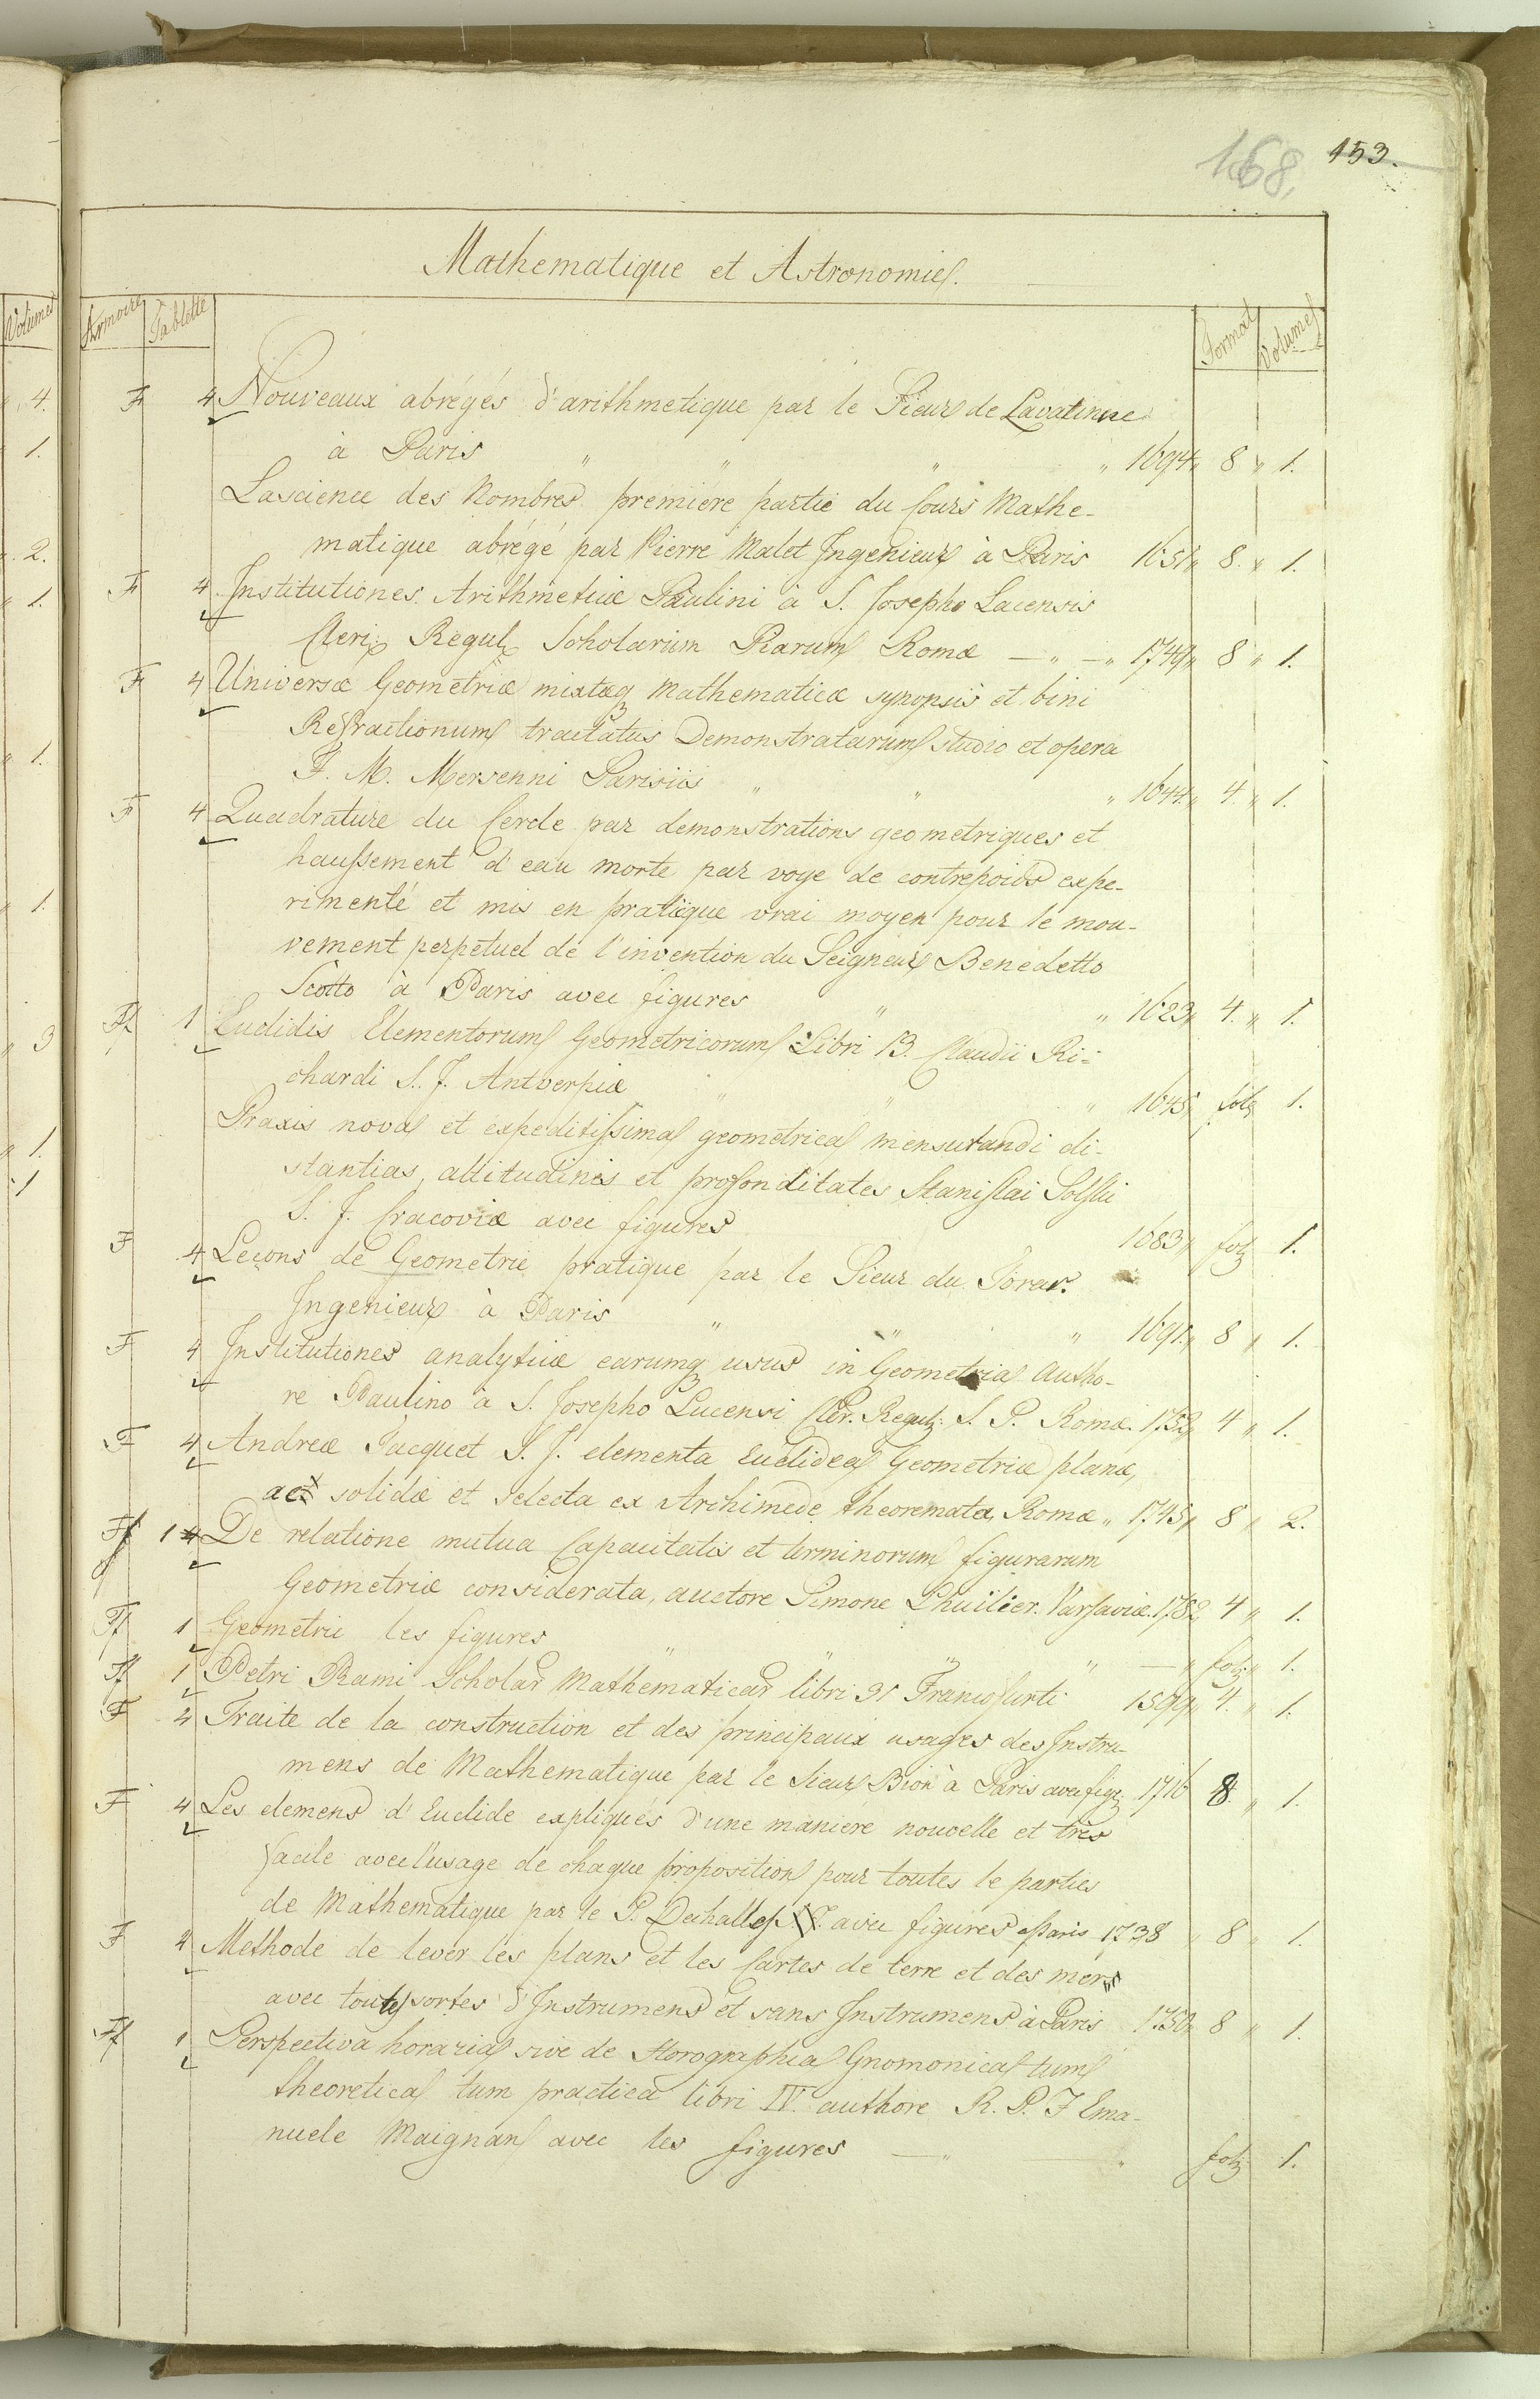 168. 153.
Mathematique et Astronomie.
Volumes Armoire Tablette Format Volumes
F 4 Nouveaux abrégés d'arithmetique par le Sieur de Lavatinne
à Paris " " " " 1694 " 8 " 1.
La science des Nombres premiére partie du Cours Mathe-
matique abrégé par Pierre Malet Ingenieur à Paris 1651 " 8. " 1.
F 4 Institutiones Arithmeticæ Paulini à S. Josepho Lucensis
Cleric Regul Scholarum Piarum Romæ — " — " 1749 " 8 " 1.
F 4 Universæ Geometriæ mixtæq Mathematicæ synopsis et bini
Refractionum tractatus Demonstratarum studio et opera
F. M. Mersenni Parisiis " " " 1644 " 4. " 1.
F 4 Quadrature du Cercle par demonstrations geometriques et
haussement d'eau morte par voye de contrepoids expe-
rimenté et mis en pratique vrai moyen pour le mou-
vement perpetuel de l'invention du Seigneur Benedetto
Scotto à Paris avec figures " " 1623 " 4. " 1.
Ff 1 Euclidis Elementorum Geometricorum Libri 13. Claudii Ri-
chardi S. J. Antverpiæ " " " 1645 " fol 1.
Praxis nova et expeditissima geometrica mensurandi di-
stantias, altitudines et profonditates Stanislai Solski
S. J. Cracoviæ avec figures 1683 " fol 1.
F 4 Leçons de Geometrie pratique par le Sieur du Torar.
Ingenieur à Paris " " " 1691. " 8 " 1.
F 4 Institutiones analyticæ earumq usus in Geometria autho-
re Paulino à S. Josepho Lucensi Cler. Regul. S. P. Romæ. 1752 " 4 " 1.
F 4 Andreæ Tacquet S. J. elementa Euclidea Geometriæ planæ,
ac solidæ et selecta ex Archimede theoremata, Romæ " 1745 " 8 " 2.
Ff 1 De relatione mutua Capacitatis et terminorum figurarum
Geometriæ considerata, auctore Simone L'huilier. Varsaviæ. 1782 4 " 1.
Ff 1 Geometrie les figures " " " " — " fol. " 1.
Ff 1 Petri Rami Scholar Mathematicar libri 31 Francofurti 1599 " 4. " 1.
F 4 Traite de la construction et des principaux usages des Instru-
mens de Mathematique par le Sieur Bion à Paris avec fig. 1716 8 " 1.
F 4 Les elemens d'Euclide expliqués d'une maniere nouvelle et très
facile avec l'usage de chaque proposition pour toutes le parties
de Mathematique par le P. Dechalles S. J. avec figures Paris 1738 " 8 " 1.
F 4 Methode de lever les plans et les Cartes de terre et des mers
avec toutes sortes d'Instrumens et sans Instrumens à Paris 1750 " 8 " 1.
Ff 1 Perspectiva horaria sive de Horographia Gnomonica tum
theoretica tum practica libri IV. authore R. P. F Ema-
nuele Maignan avec les figures — " — " fol 1.